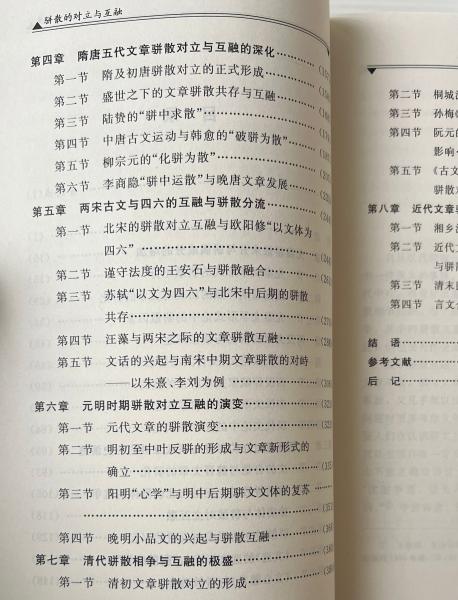 骈散的对立与互融
第四章 隋唐五代文章骈散对立与互融的深化
第一节 隋及初唐骈散对立的正式形成
第二节 盛世之下的文章骈散共存与互融
第三节 陆贽的“骈中求散”
第四节 中唐古文运动与韩愈的“破骈为散”
第五节 柳宗元的“化骈为散”
第六节 李商隐“骈中运散”与晚唐文章发展
第五章 两宋古文与四六的互融与骈散分流
第一节 北宋的骈散对立互融与欧阳修“以文体为
四六”
第二节 谨守法度的王安石与骈散融合
第三节 苏轼“以文为四六”与北宋中后期的骈散
共存
第四节 汪藻与两宋之际的文章骈散互融
第五节 文话的兴起与南宋中期文章骈散的对峙
——以朱熹、李刘为例
第六章 元明时期骈散对立互融的演变
第一节 元代文章的骈散演变
第二节 明初至中叶反骈的形成与文章新形式的
确立
第三节 阳明“心学”与明中后期骈文文体的复苏
第四节 晚明小品文的兴起与骈散互融
第七章 清代骈散相争与互融的极盛
第一节 清初文章骈散对立的形成
第二节 桐城
第三节 孙梅
第四节 阮元的
影响
第五节 《古文
骈散
第八章 近代文章
第一节 湘乡
第二节 近代
与骈
第三节 清末
第四节 言文
结语
参考文献
后记